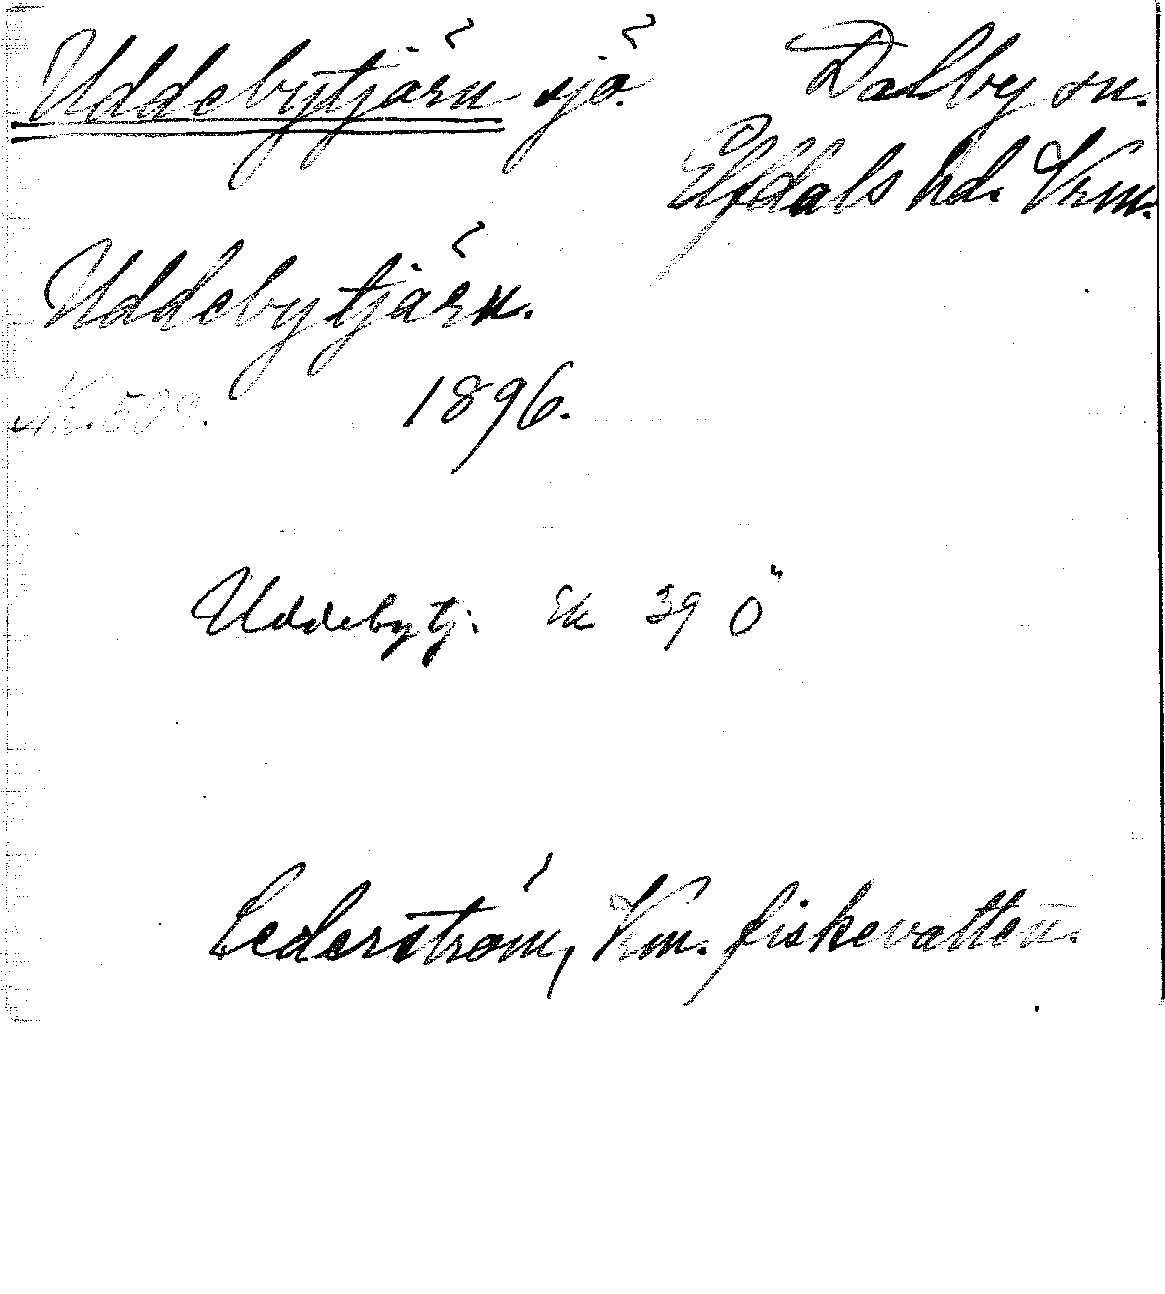 Uddebytjärn sjö. Dalby sn.
Elfdals hd. Vrm.
Uddebytjärn.
Nr. 509. 1896.
Uddebytj: Ek 39 Ö
Cederström, Vrm. fiskevatten.